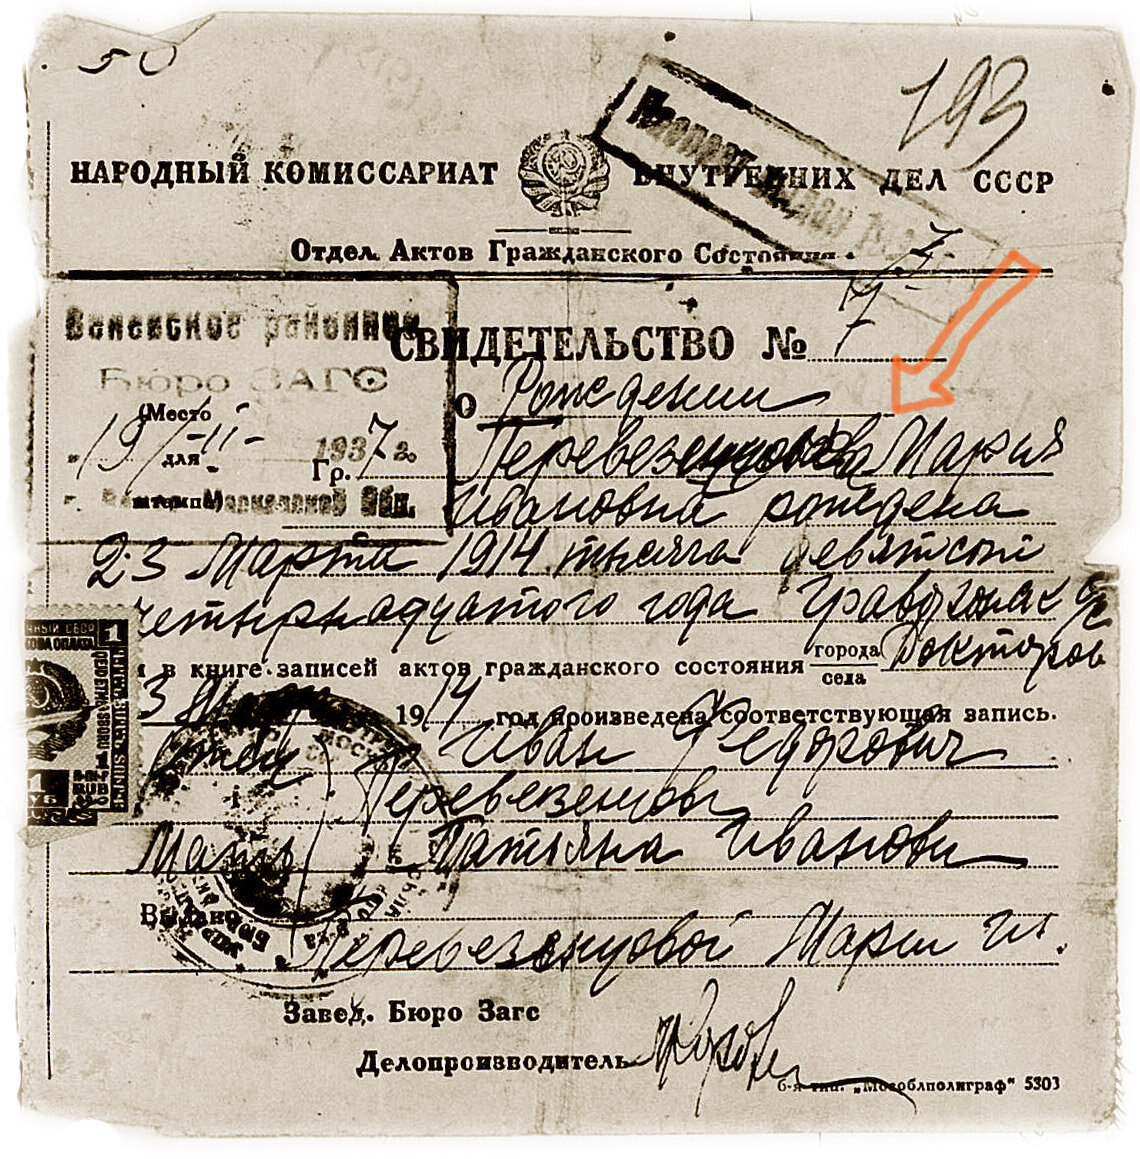 50
193
НАРОДНЫЙ КОМИССАРИАТ ВНУТРЕННИХ ДЕЛ СССР
Отдел Актов Гражданского Состояния
районное
Бюро ЗАГС
(Место
для
штемпеля)
19/-II- 1937 г.
СВИДЕТЕЛЬСТВО №
О Рождении
Гр. Перевезенцова Мария
Ивановна рождена
23 Марта 1914 тысяча девятсот
четырнадцатого года
в книге записей актов гражданского состояния города
села
1914 год произведена соответствующая запись.
Отец Иван Федорович
Перевезенцов
Мать Татьяна Иванови
Выдано
Перевезенцовой Марии И.
Завед. Бюро Загс
Делопроизводитель
6-я тип. „Мособлполиграф" 5303